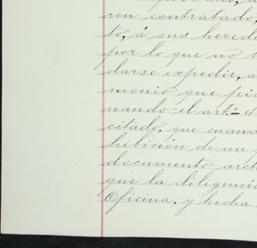 ren contratado,
to, á sus hered
por lo que no
darse expedir, a
monió que pi
nando el art.º 4
citado, que cuand
hibición de un
documento arc
que la diligenci
Oficina, y hecha